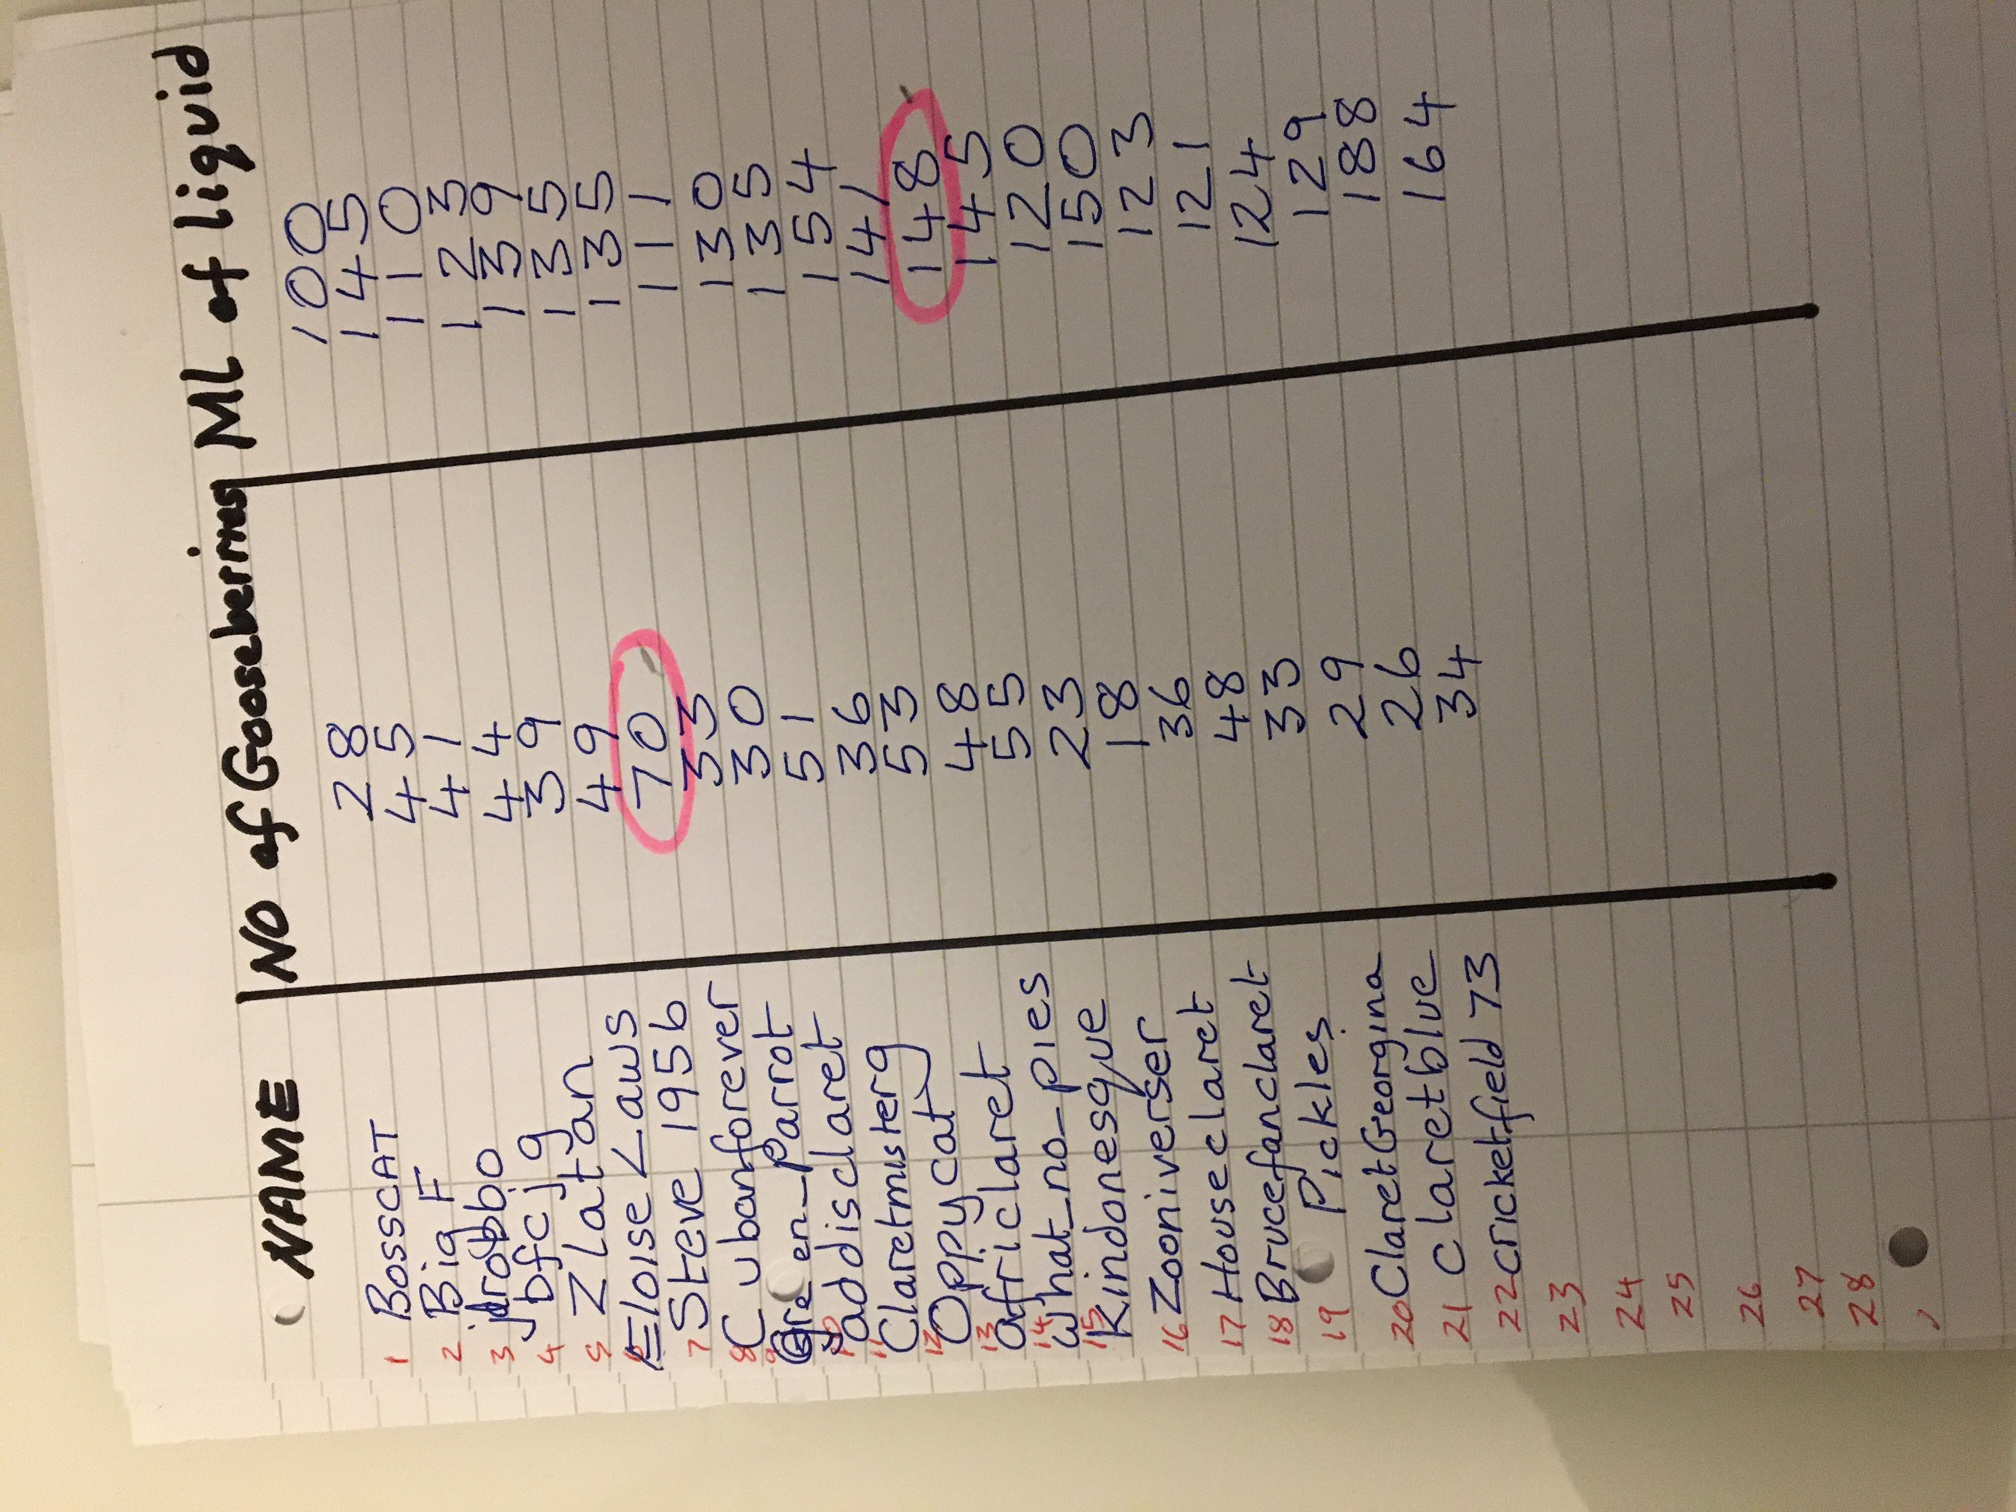 NAME NO of Gooseberries ML of liquid
1 BossCAT 28 100
2 Big F 45 145
3 jrobbo 41 110
4 jbfcjg 44 123
5 Zlatan 39 139
6 Eloise Laws 49 135
7 Steve 1956 70 135
8 Cubanforever 33 111
9 Green_Parrot 30 130
10 yaddisclaret 51 135
11 Claretmisterg 36 154
12 Oppycat 53 141
13 africlaret 48 148
14 what_no_pies 55 145
15 Kindonesque 23 120
16 Zooniverser 18 150
17 Houseclaret 36 123
18 Brucefanclaret 48 121
19 Pickles 33 124
20 ClaretGeorgina 29 129
21 Claretblue 26 188
22 cricketfield 73 34 164
23
24
25
26
27
28